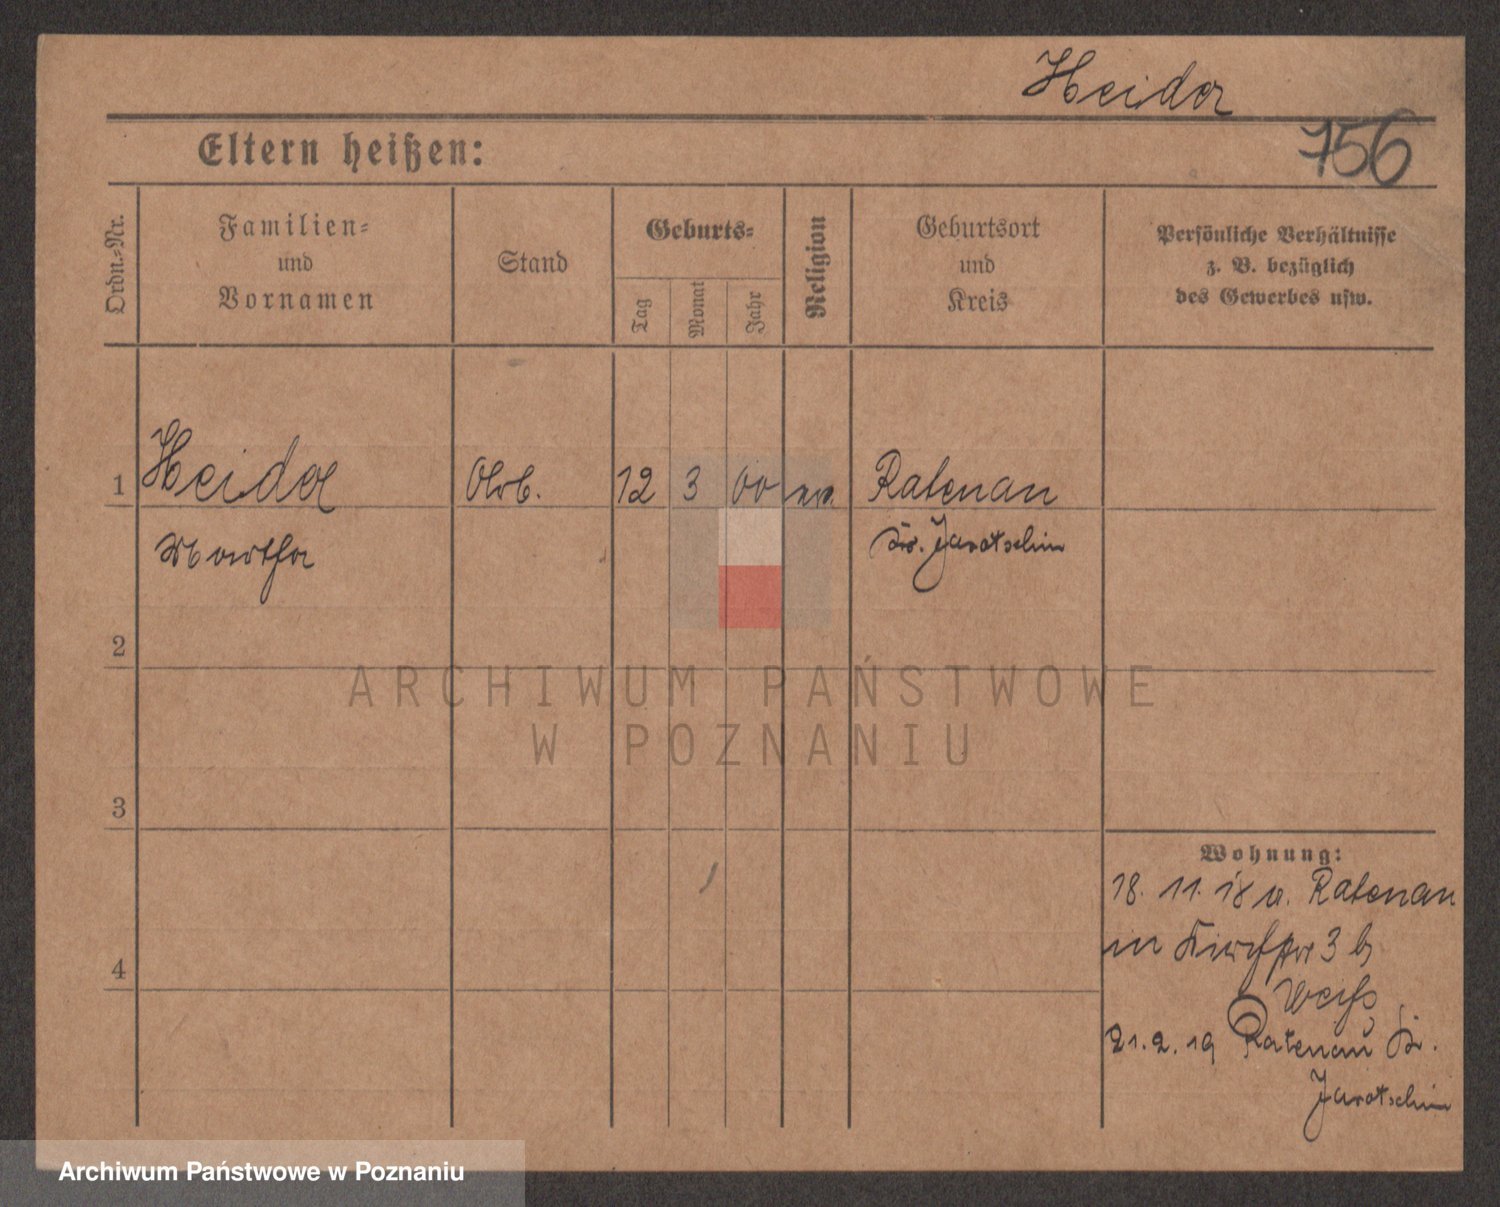 Heider
756
Eltern heißen:
Ordn.-Nr.
Familien-
und
Vornamen
Stand
Geburts-
Tag
Monat
Jahr
Religion
Geburtsort
und
Kreis
Persönliche Verhältnisse
z. B. bezüglich
des Gewerbes usw.
1 Heider Arb. 12 3 00 Ratenau
Martha Kr. Jarotschin
2
3
4
ARCHIWUM PAŃSTWOWE
W POZNANIU
Wohnung:
18. 11. 18 v. Ratenau
3 b
Weiß
21. 2. 19 Ratenau Kr.
Jarotschin
Archiwum Państwowe w Poznaniu